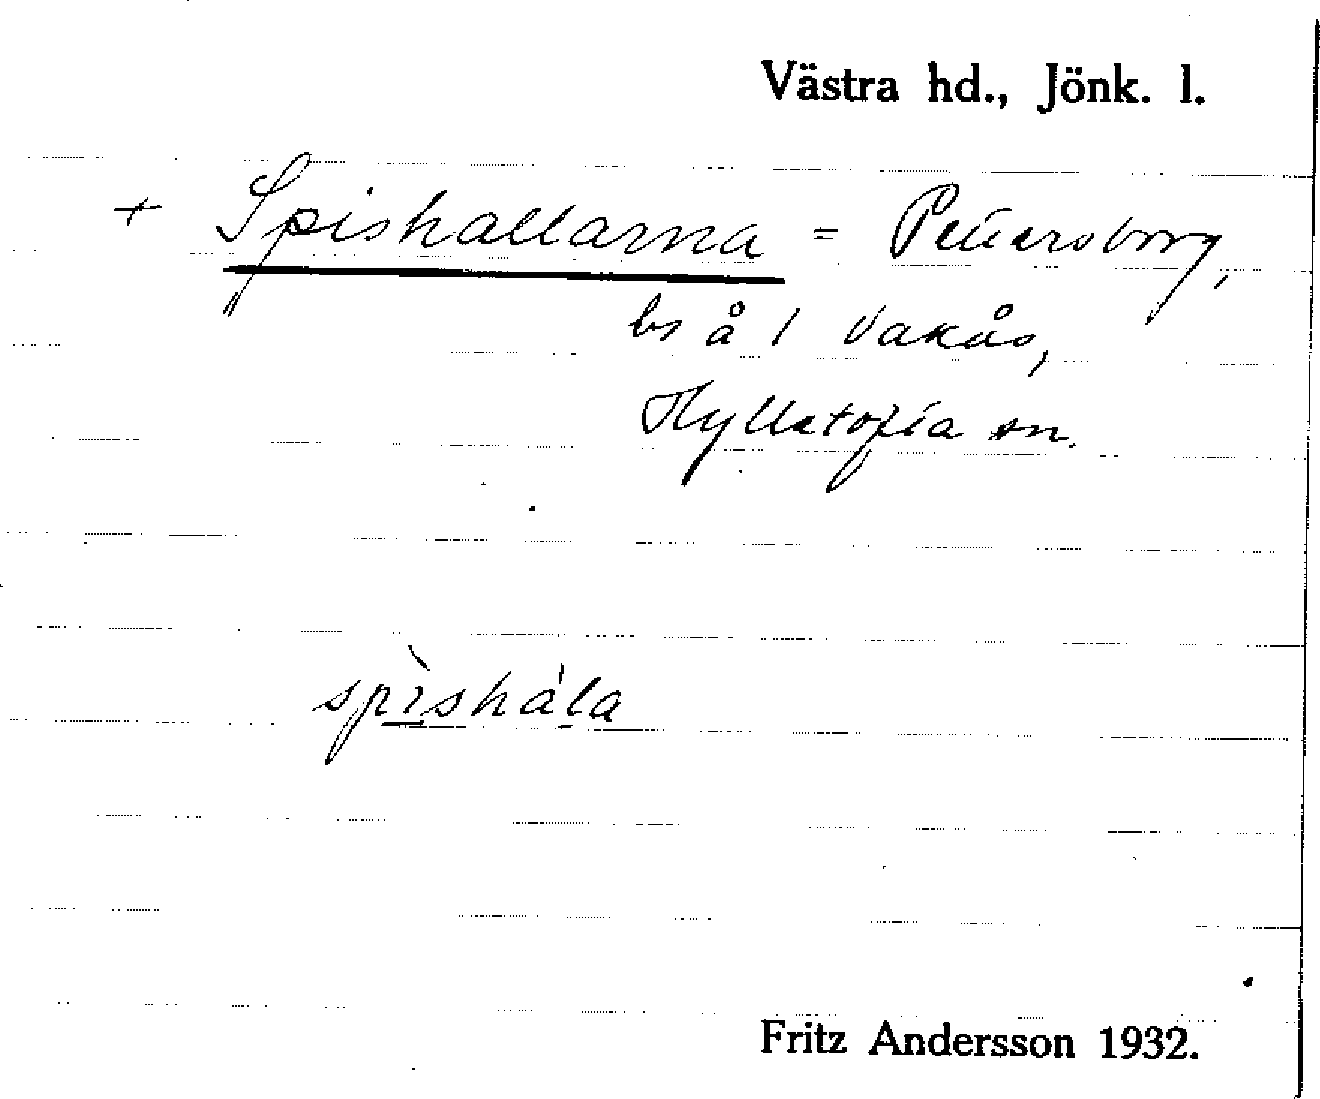 Västra hd., Jönk. l.
+ Spishallarna = Pettersborg,
bs å 1 Vakås,
Hylletofta sn.
spìshàla
Fritz Andersson 1932.